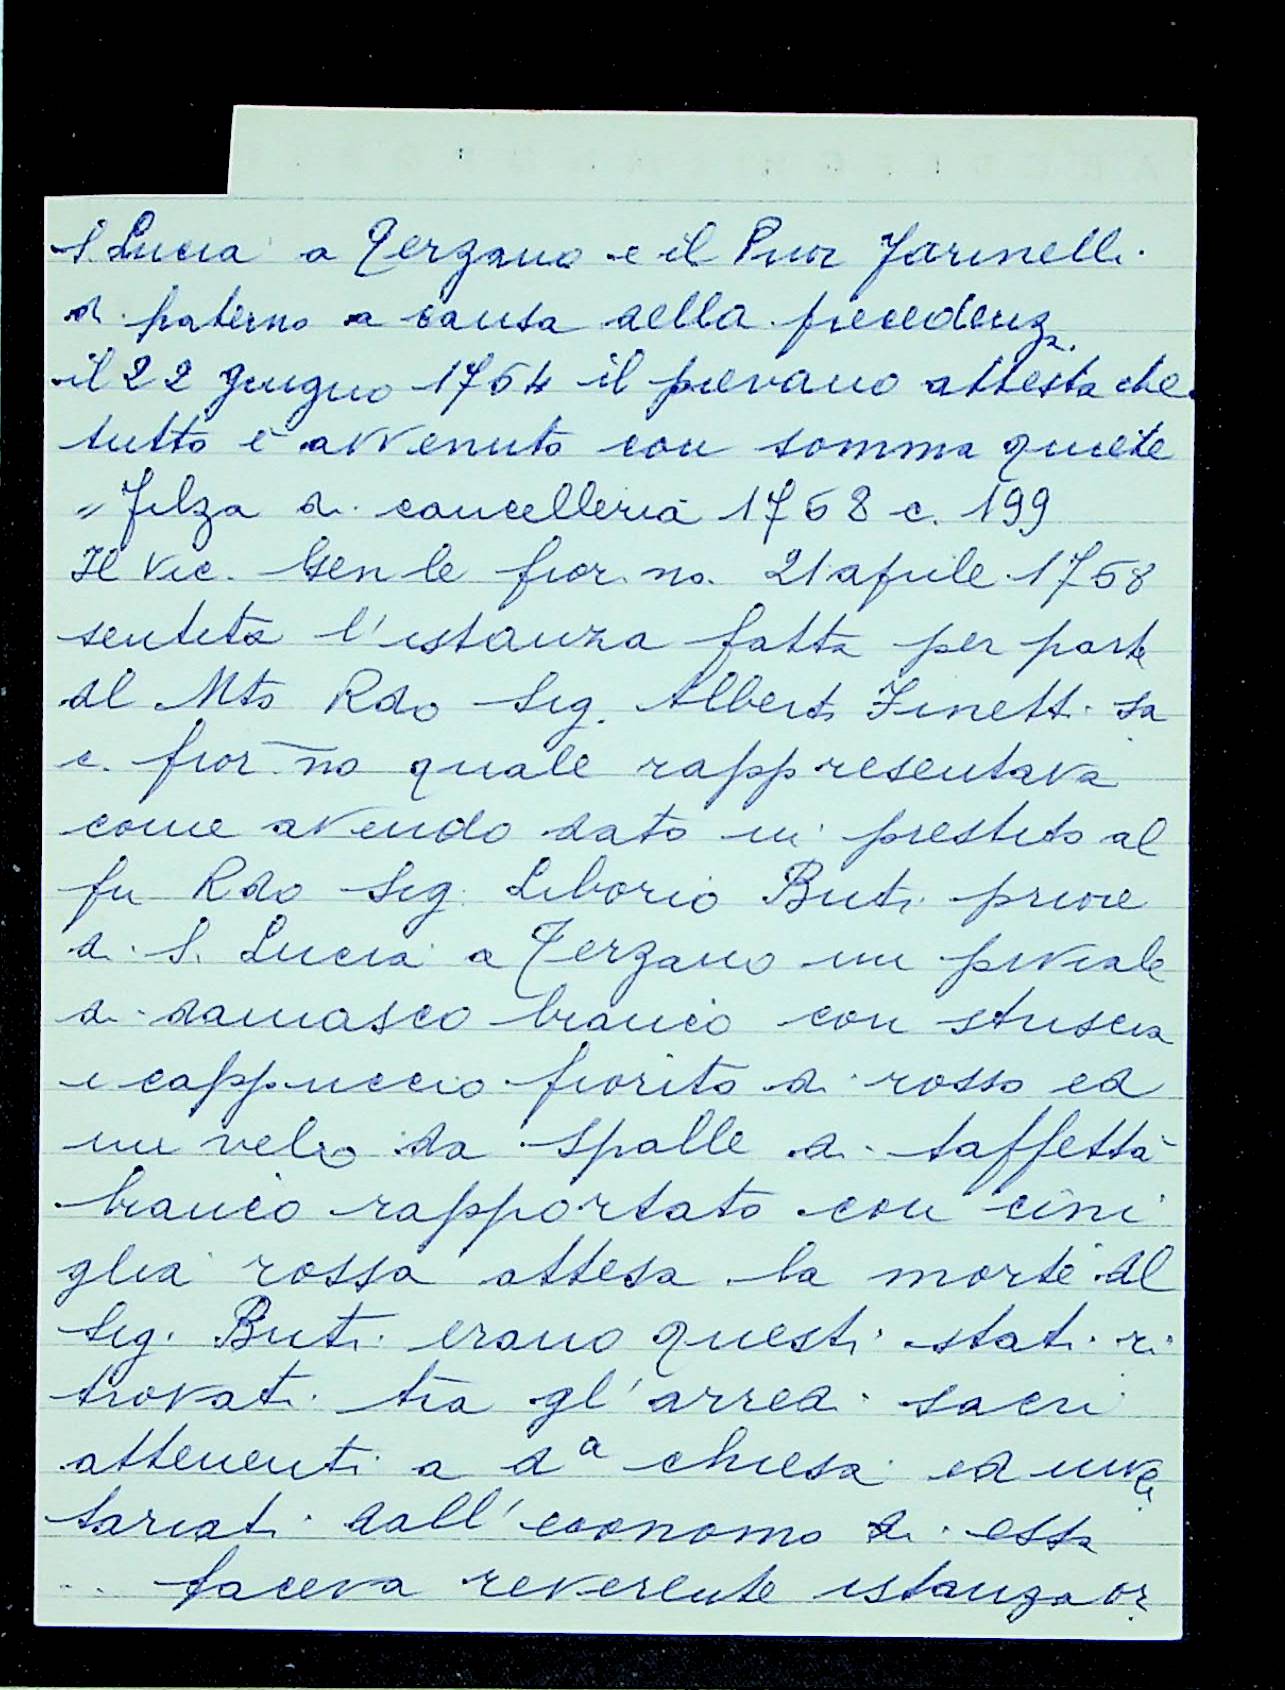 S. Lucia a Terzano e il Prior Farinelli
di paterno a causa della precedenza
il 22 giugno 1764 il pievano attesta che
tutto è avvenuto con somma quiete
" Filza di cancelleria 1768 c. 199
Il Vic. Gen le fior. no. 21 aprile 1768
sentita l'istanza fatta per parte
del Mto Rdo Sig. Alberto Finetti sa
c. fior no quale rappresentava
come avendo dato in prestito al
fu Rdo Sig. Liborio Buti priore
di S. Lucia a Terzano un piviale
di damasco bianco con striscia
e cappuccio fiorito di rosso ed
un velo da spalle di taffettà
bianco rapportato con cini
glia rossa attesa la morte del
Sig. Buti erano questi stati ri
trovati tra gl'arredi sacri
attenenti a da chiesa ed inve
tariati dall'economo di essa
.. faceva reverente istanza or